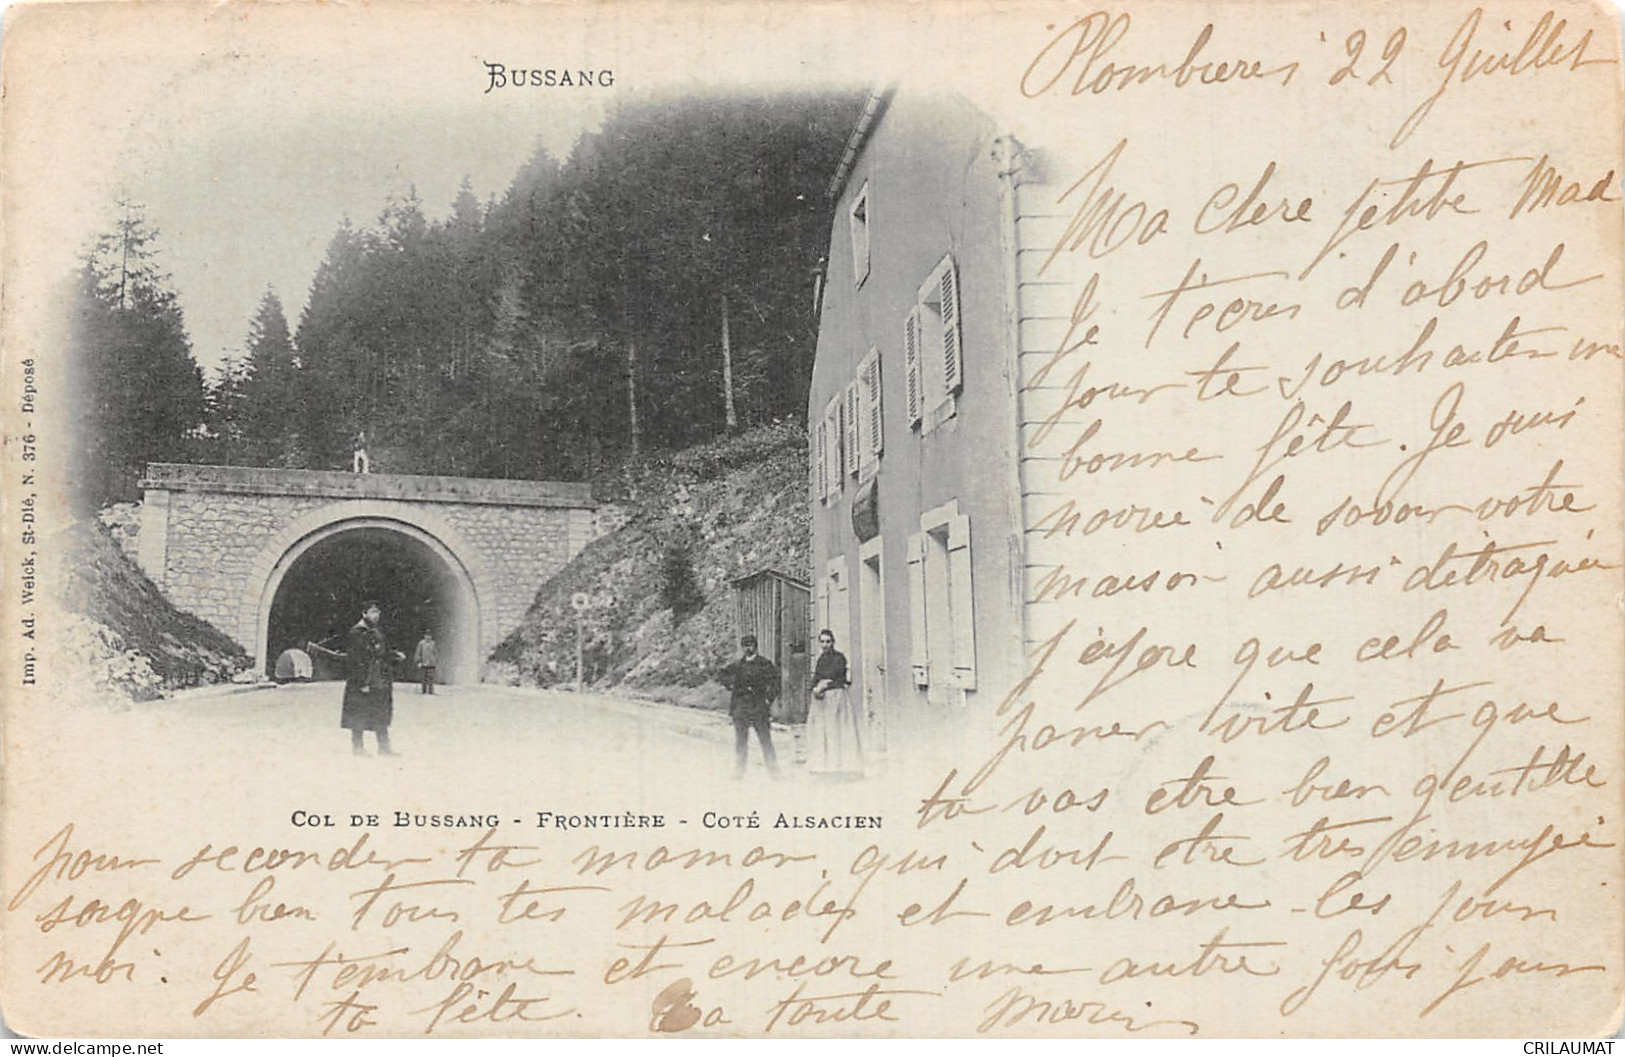 BUSSANG
Plombieres 22 Juillet
Ma Chere petite Mad
Je t'ecris d'abord
pour te souhaiter une
bonne fête. Je suis
navrée de savoir votre
maison aussi détraquée
j'espere que cela va
passer vite et que
tu vas etre bien gentille
pour seconder ta maman, qui doit etre tres ennuyée
soigne bien tous tes malades et embrasse-les pour
moi. Je t'embrasse et encore une autre fois pour
ta fête. Ta tante
COL DE BUSSANG - FRONTIÈRE - COTÉ ALSACIEN
Imp. Ad. Weick, St-Dié, N. 376 - Déposé
www.delcampe.net
CRILAUMAT